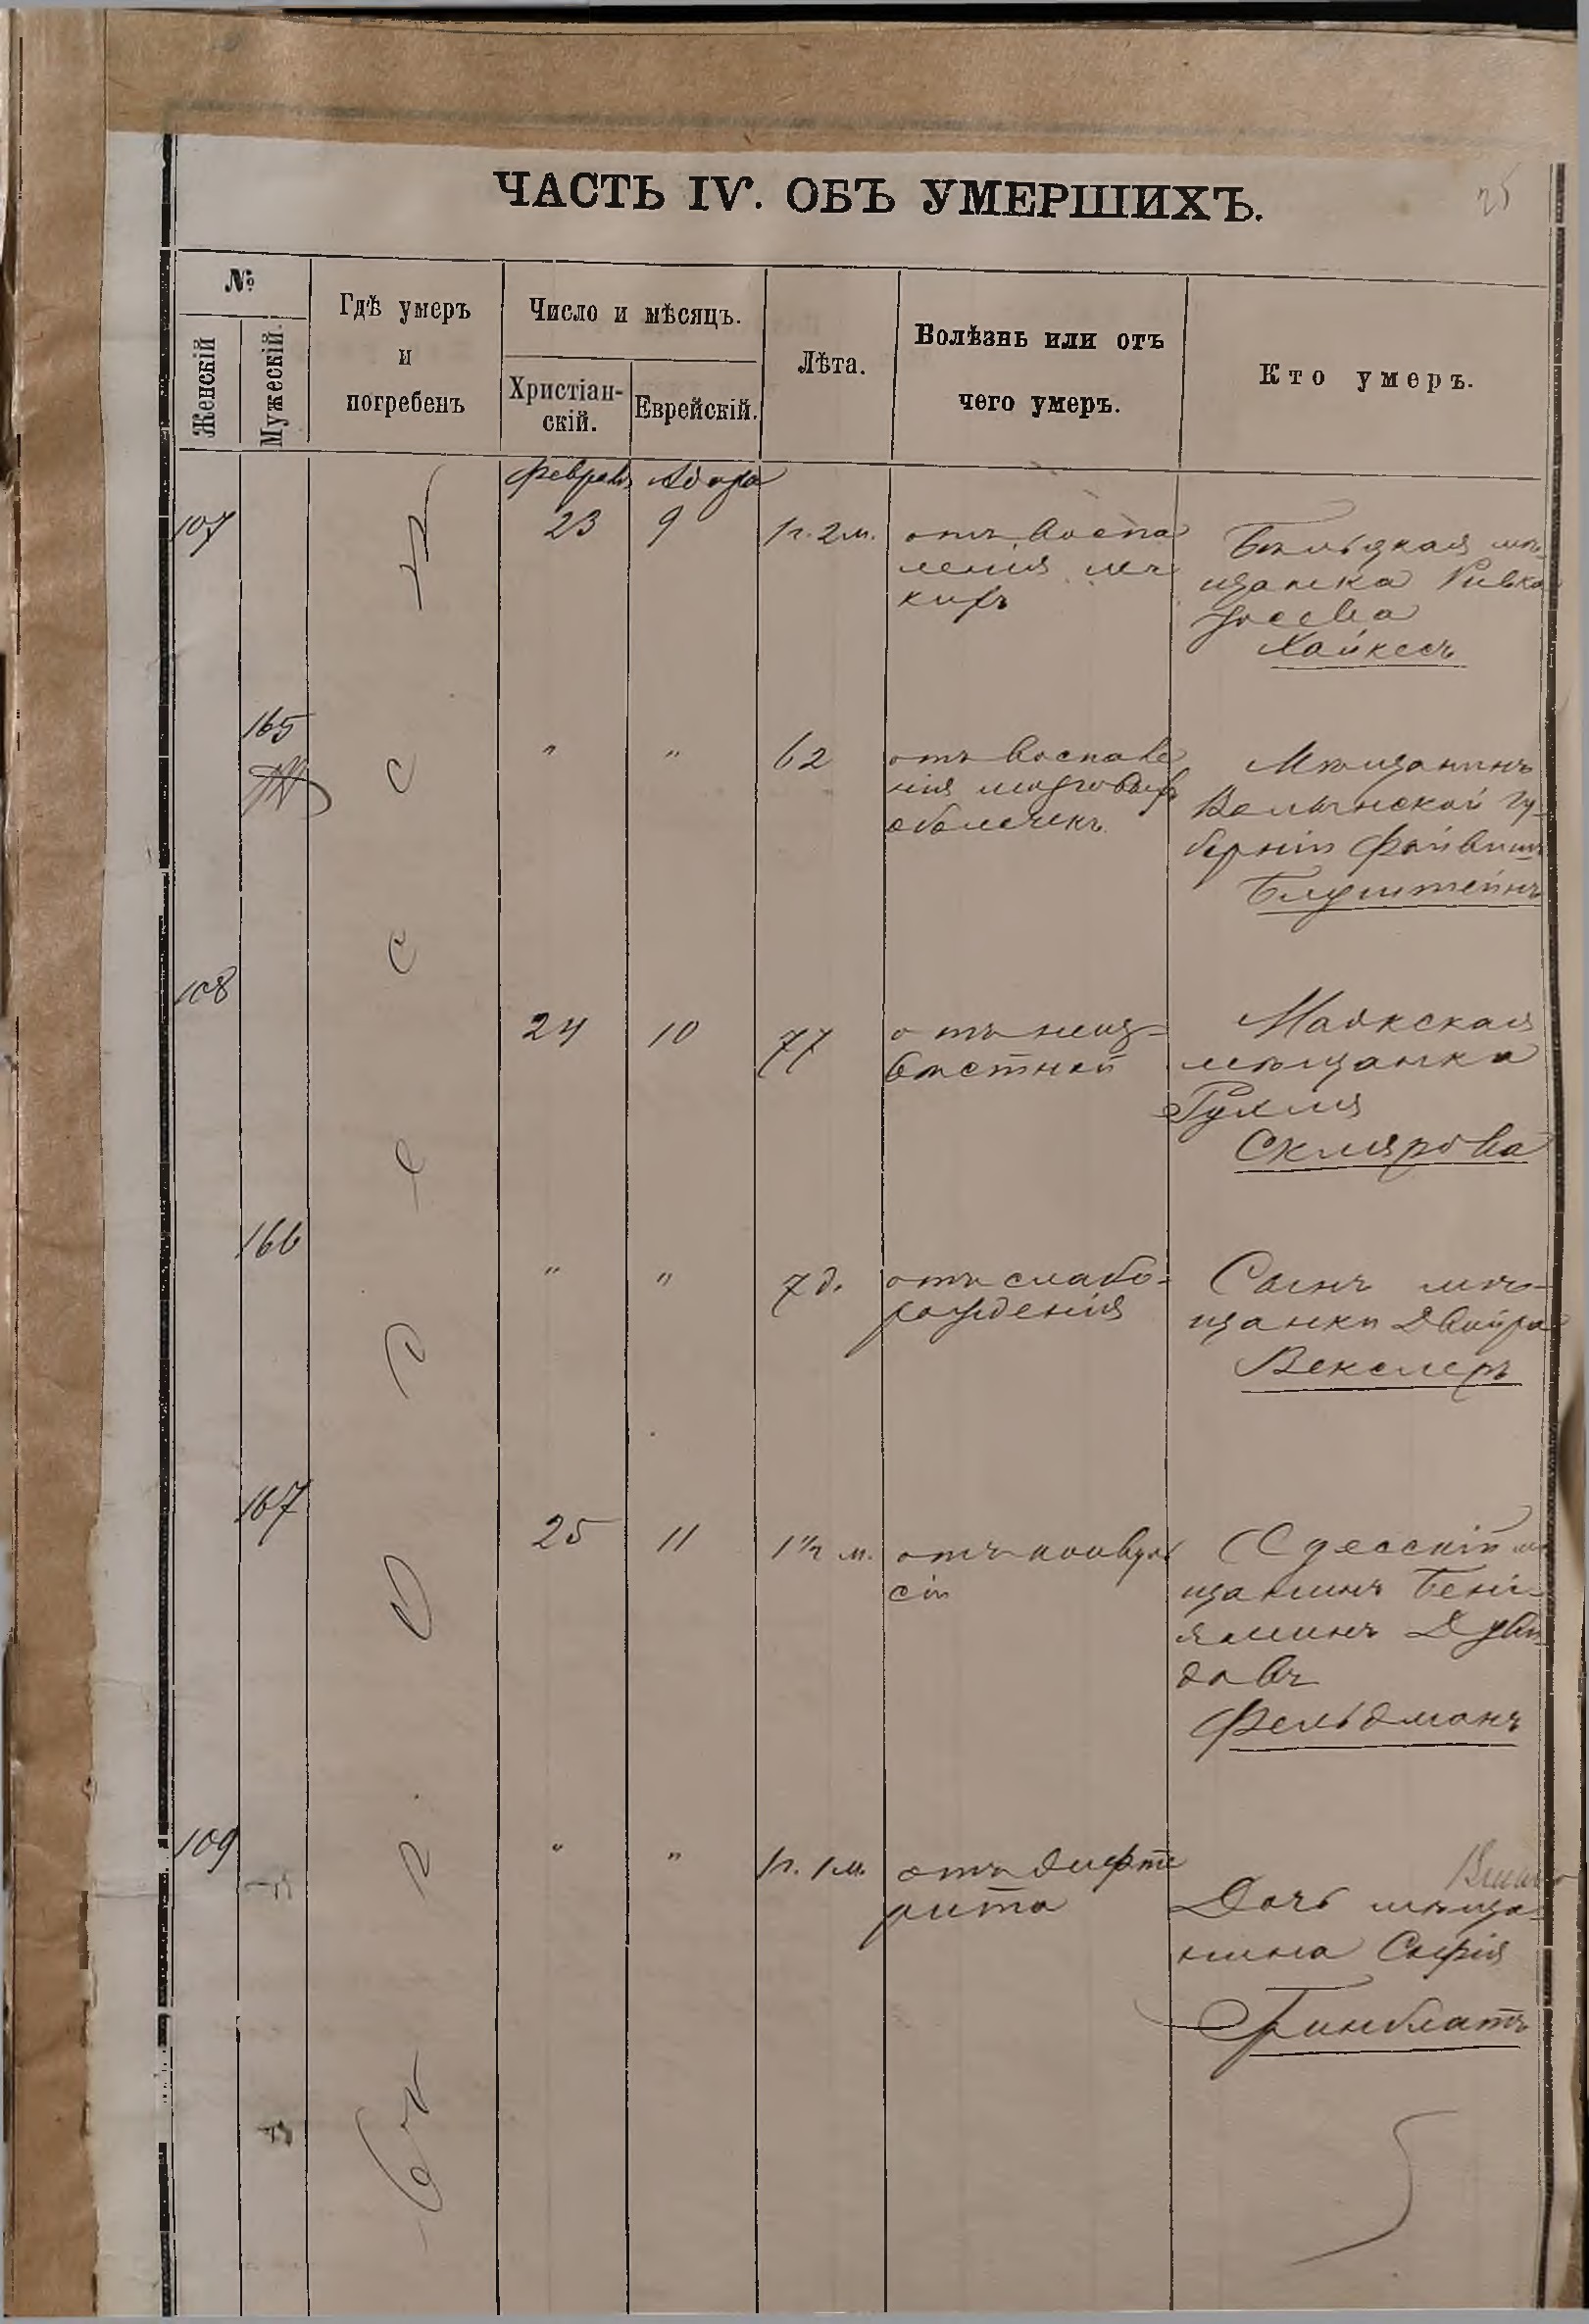 ЧАСТЬ IV. ОБЪ УМЕРШИХЪ.
25
№
Женскій
Мужескій.
Гдѣ умеръ
и
погребенъ
Число и мѣсяцъ.
Христіан-
скій.
Еврейскій.
Лѣта.
Болѣзнь или отъ
чего умеръ.
Кто умеръ.
Февраль Адаръ
107 23 9 1 г. 2 м. отъ воспа
ленія лег
кихъ
Бѣльцкая мѣ-
щанка Ривка
Іосева
Хайкесъ
165 " " 62 отъ воспале
нія мозговыхъ
оболочекъ
Мѣщанинъ
Волынской гу-
берніи Файвишъ
Блуштейнъ
108 24 10 77 отъ неиз-
вѣстной
Маякская
мѣщанка
Рухля
Склярова
166 " " 7 д. отъ слабо-
рожденія
Сынъ мѣ-
щанки Двойра
Векслеръ
167 25 11 1½ м. отъ конвуль
сіи
Одесскій мѣ
щанинъ Бені-
яминъ Дуви
довъ
Фельдманъ
109 " " 1 г. 1 м. отъ дифте
рита
Дочь мѣща-
нина Софія
Гринблатъ
Въ Одессѣ